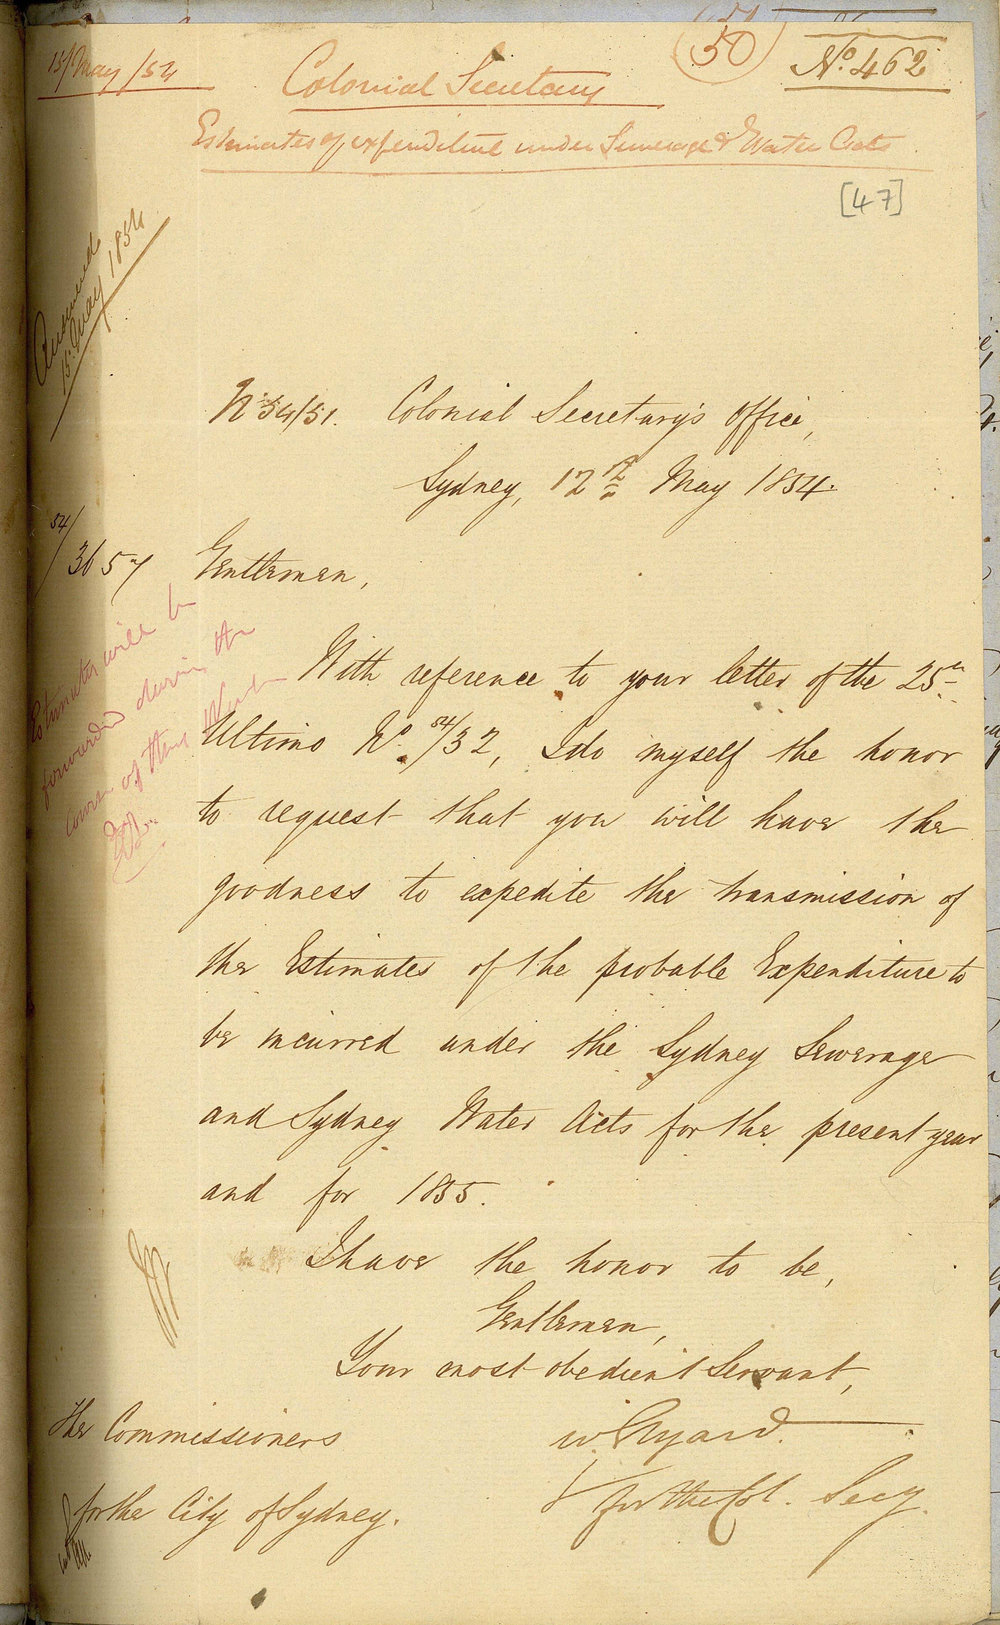 15/May/54
50
No. 462
Colonial Secretary
Estimates of expenditure under Sewerage & Water Acts
[47]
Answered
15 May 1854
No 54/51. Colonial Secretary's Office,
Sydney, 12th May 1854.
54/3657
Gentlemen,
Estimates will be
forwarded during the
course of this Week
With reference to your letter of the 25th
Ultimo No. 54/32, I do myself the honor
to request that you will have the
goodness to expedite the transmission of
the Estimates of the probable Expenditure to
be incurred under the Sydney Sewerage
and Sydney Water Acts for the present year
and for 1855.
I have the honor to be,
Gentlemen,
Your most obedient Servant,
W. Elyard
for the Col. Secy.
The Commissioners
for the City of Sydney.